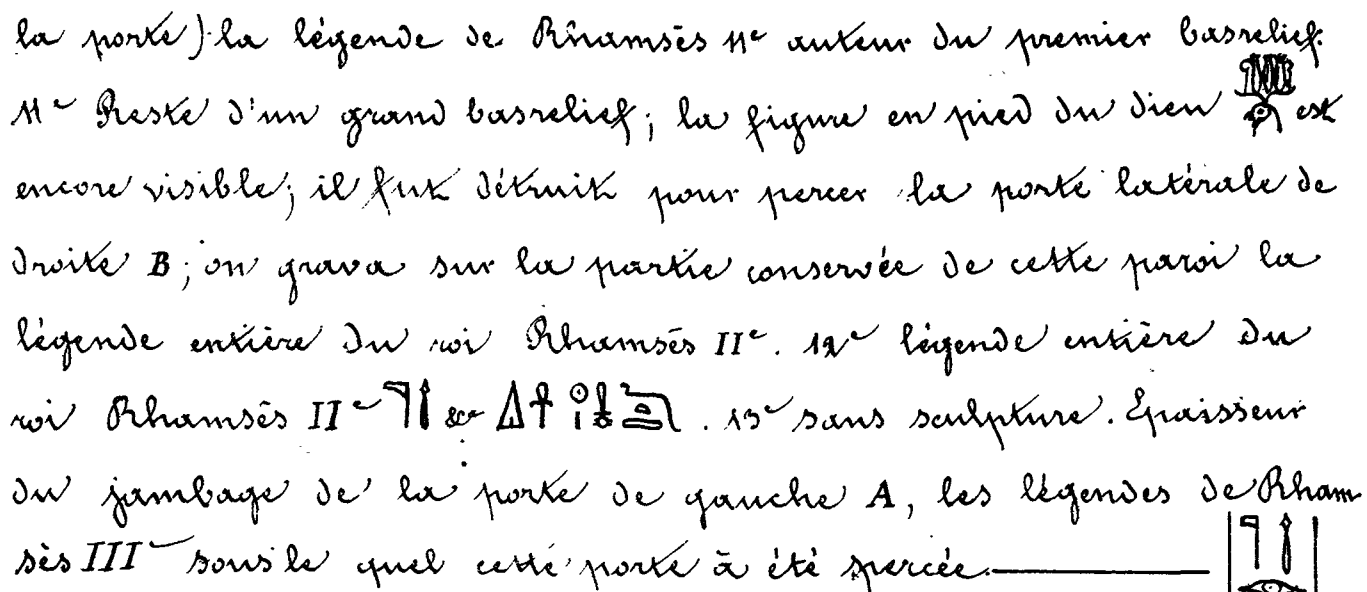 la porte) la légende de Rhamsès 11e auteur du premier basrelief.
11e Reste d'un grand basrelief; la figure en pied du dieu est
encore visible; il fut détruit pour percer la porte latérale de
droite B; on grava sur la partie conservée de cette paroi la
légende entière du roi Rhamsès IIe. 12e légende entière du
roi Rhamsès IIe 𓊹𓄤 &c 𓇳 . 13e sans sculpture. Epaisseur
du jambage de la porte de gauche A, les légendes de Rham
sès IIIe sous le quel cette porte à été percée.